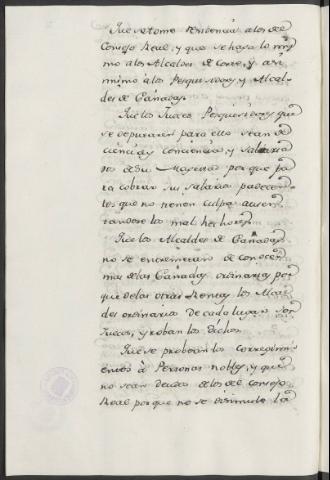 Que se tome residencia alos del
Consejo Real, y que se haga lo mis
mo alos Alcaldes de Corte, y asi
mismo álos Pesquisidores y Alcal-
des de Cañadas.
Que los Jueces Pesquisidores que
se deputaren para ello sean de
ciencia y conciencia, y salaria
dos de Su Magestad porque pa
ra cobrar sus salarios padecen
los que no tienen culpa, ausen
tandose los mal hechores.
Que los Alcaldes de Cañadas
no se entremetan de conocer
mas delas Cañadas ordinarias por
que delas otras Rentas los Alcal
des ordinarios de cada lugar son
Jueces, y roban los dichos.
Que se probean los corregimi
entos á Personas nobles, y que
no sean deudos delos del consejo
Real porque no se disimule la